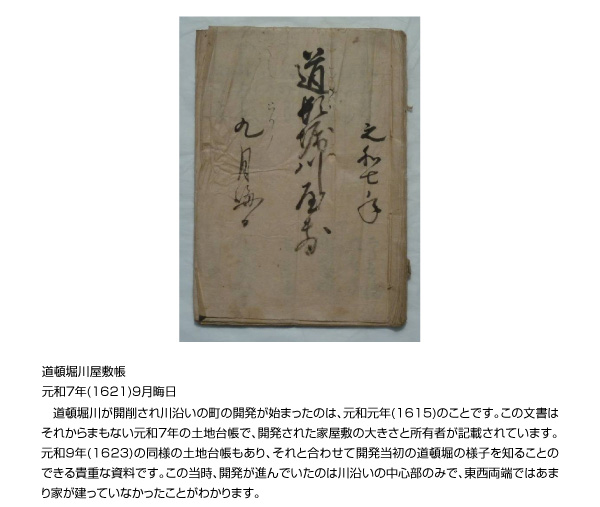 元和七年
道頓堀川屋敷
九月晦日
道頓堀川屋敷帳
元和7年(1621)9月晦日
道頓堀川が開削され川沿いの町の開発が始まったのは、元和元年(1615)のことです。この文書は
それからまもない元和7年の土地台帳で、開発された家屋敷の大きさと所有者が記載されています。
元和9年(1623)の同様の土地台帳もあり、それと合わせて開発当初の道頓堀の様子を知ることの
できる貴重な資料です。この当時、開発が進んでいたのは川沿いの中心部のみで、東西両端ではあま
り家が建っていなかったことがわかります。